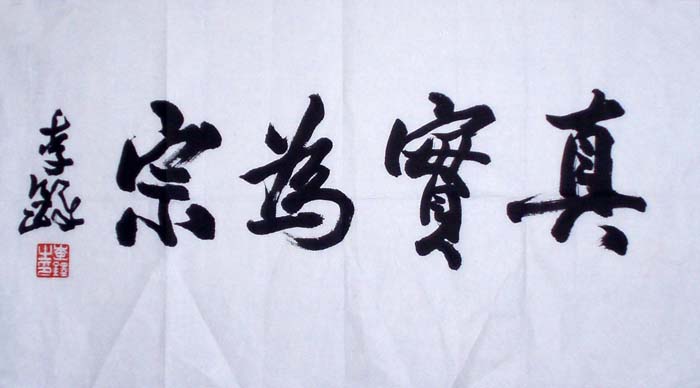 真實為宗
李